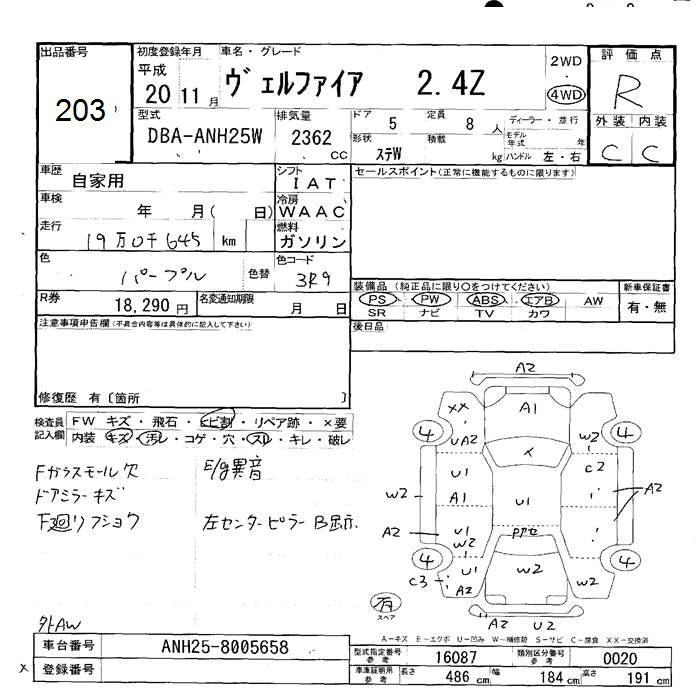 出品番号 初度登録年月 車名・グレード 2WD 評価点
203 平成 20 11月 ヴェルファイア 2.4Z 4WD R
型式 排気量 ドア 5 定員 8人 ディーラー・並行 外装 内装
DBA-ANH25W 2362 CC 形状 ステW 積載 kg モデル年式 年 ハンドル 左・右 C C
車歴 自家用 シフト IAT セールスポイント(正常に機能するものに限ります)
車検 年 月( 日) 冷房 WAAC
走行 19万0千645 km 燃料 ガソリン
色 パープル 色替 色コード 3R9
装備品 (純正品に限り○をつけてください) 新車保証書
R券 18,290円 名変通知期限 月 日 PS PW ABS エアB AW 有・無
SR ナビ TV カワ
注意事項申告欄(不具合内容等は具体的に記入して下さい) 後日品
修復歴 有〔箇所 〕
検査員記入欄 FW キズ・飛石・ヒビ割・リペア跡・×要
内装 キズ・汚レ・コゲ・穴・スレ・キレ・破レ
Fガラスモール欠 E/g異音
ドアミラーキズ
F廻リフショク 左センターピラーB
外AW
A2
XX A1
4 4
UA2 W2
メ
U1 C2
W2 A1 U1 A2
A2 U1 W2 Pアセ
4 U1 W2 4
C3 A2 W2
有 スペア
A2 U2
A-キズ E-エクボ U-凹み W-補修跡 S-サビ C-腐食 XX-交換済
車台番号 ANH25-8005658 型式指定番号 参考 16087 類別区分番号 参考 0020
× 登録番号 車庫証明用 参考 長さ 486 cm 幅 184 cm 高さ 191 cm